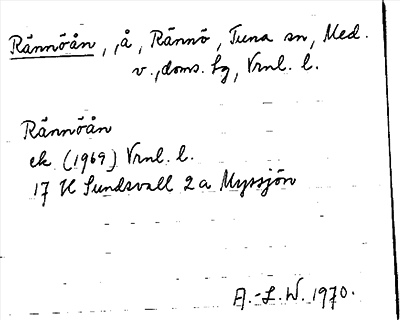 Rännöån, ,å, Rännö, Tuna sn, Med.
v., doms. hg, Vrnl. l.
Rännöån
ek (1969) Vrnl. l.
17 H Sundsvall 2 a Myssjön
A.-L. W. 1970.